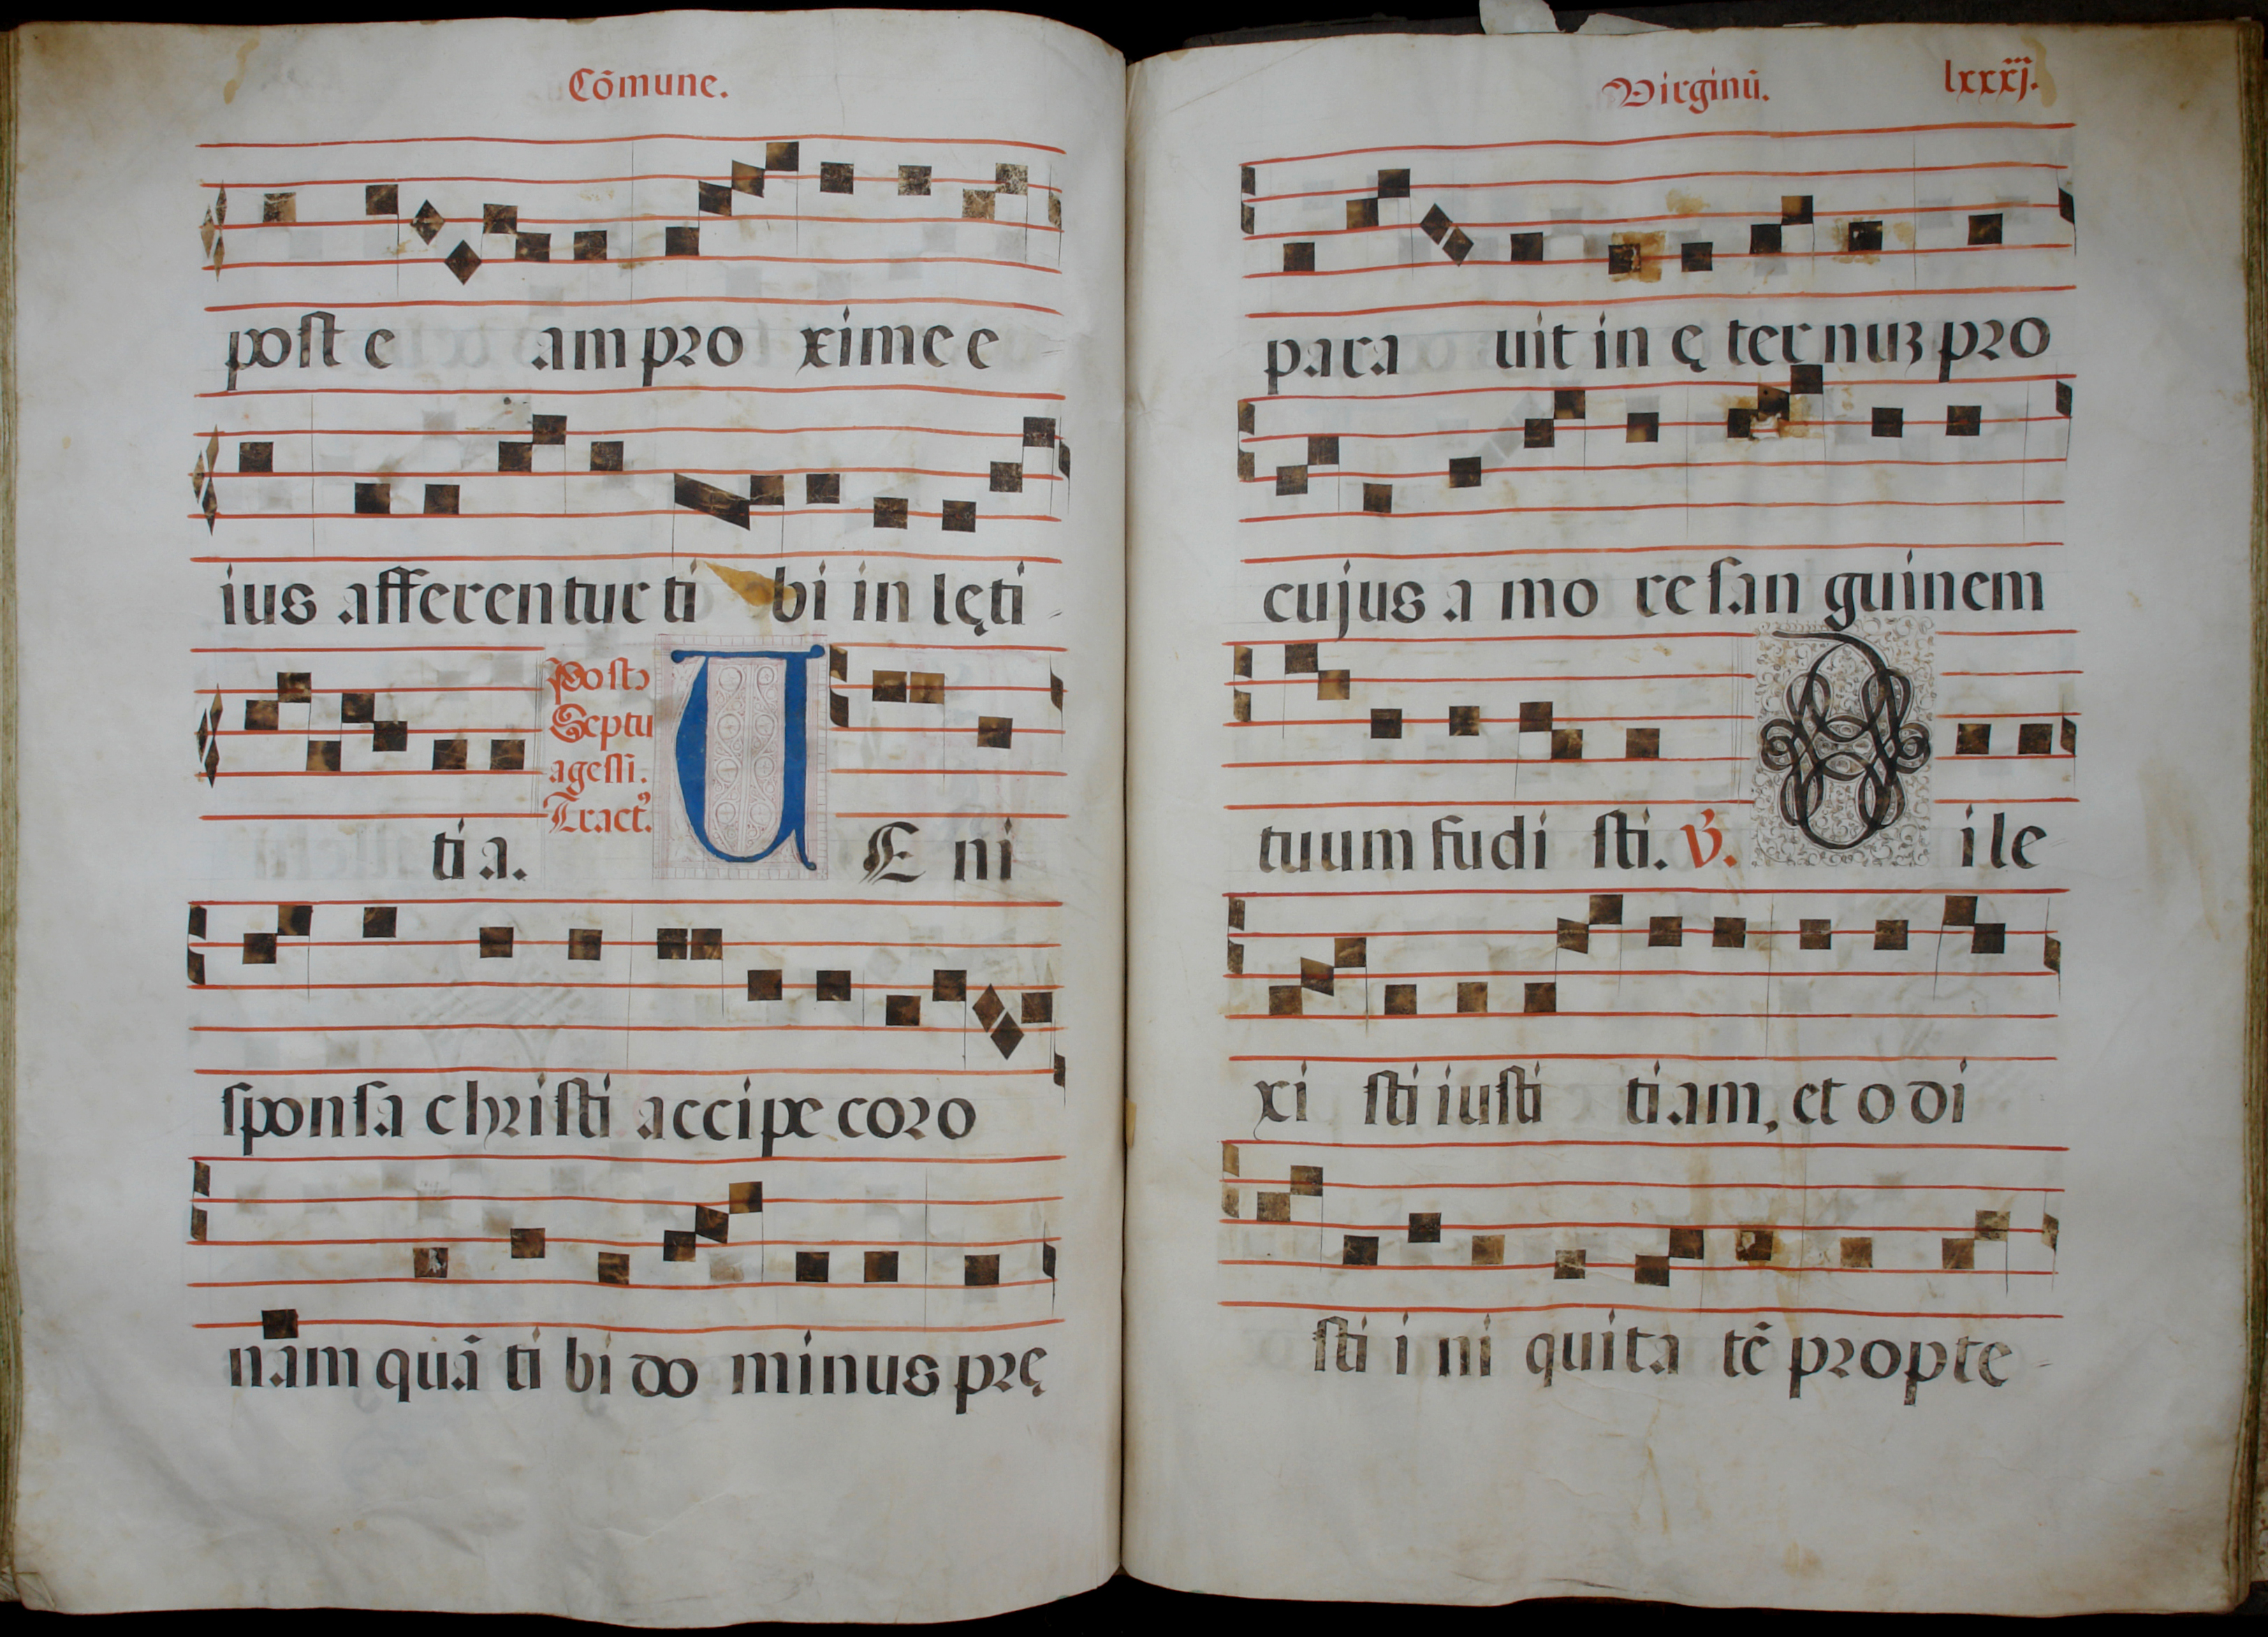 Cõmune.
post e am pro xime e
ius afferentur ti bi in lęti
ti a.
Post
Septu
agessi.
Tract⁹
U E ni
sponsa christi accipe coro
nam quã ti bi do minus prę
Virginũ. lxxxj.
para uit in ę ter nuꝫ pro
cujus a mo re san guinem
tuum fudi sti. V. D ile
xi sti iusti tiam, et o di
sti i ni quita tẽ propte